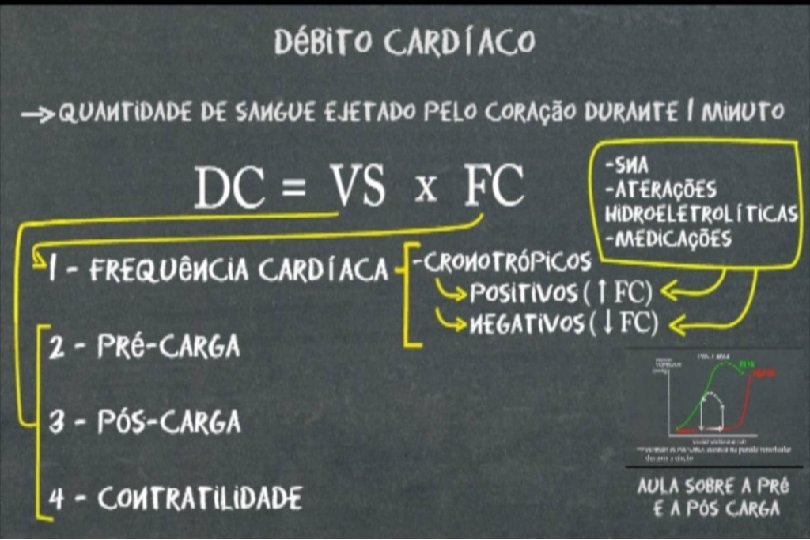 DÉBITO CARDÍACO
→ QUANTIDADE DE SANGUE EJETADO PELO CORAÇÃO DURANTE 1 MINUTO
DC = VS x FC
-SNA
-ATERAÇÕES
HIDROELETROLÍTICAS
-MEDICAÇÕES
1 - FREQUÊNCIA CARDÍACA
-CRONOTRÓPICOS
POSITIVOS (↑ FC)
NEGATIVOS (↓ FC)
2 - PRÉ-CARGA
3 - PÓS-CARGA
4 - CONTRATILIDADE
AULA SOBRE A PRÉ
E A PÓS CARGA